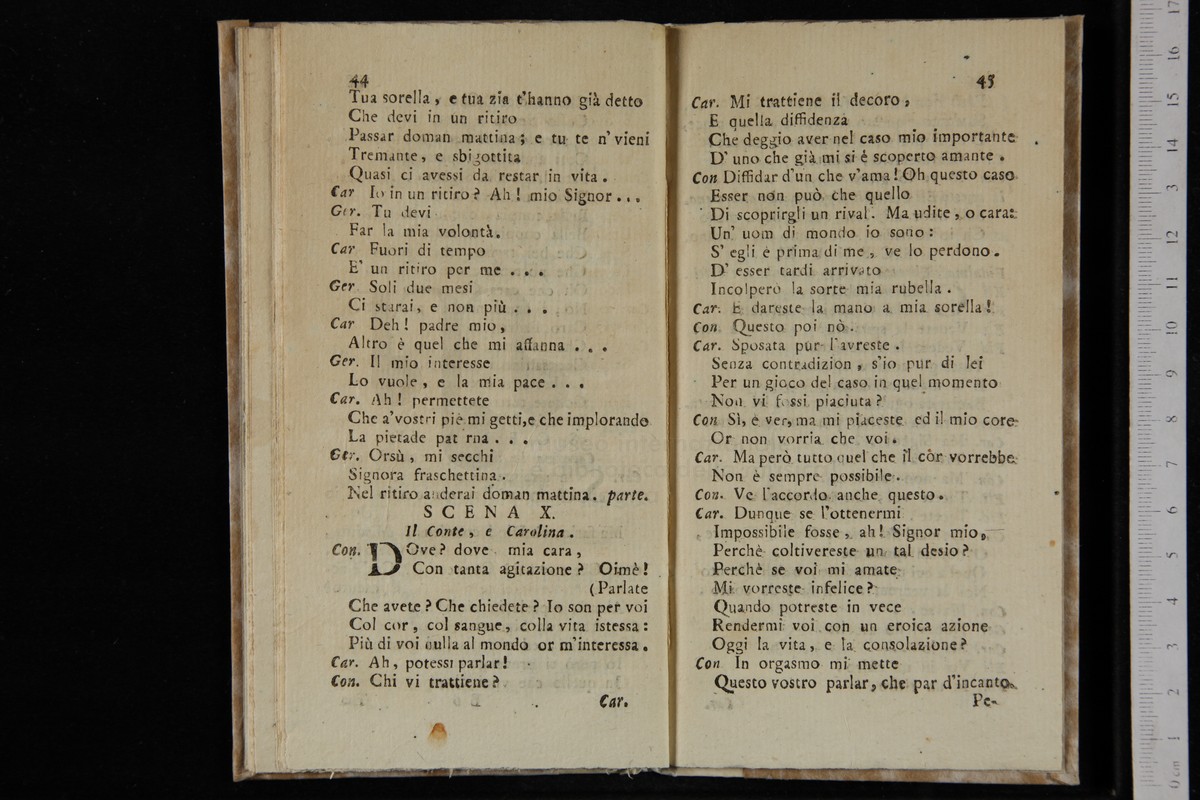 44
Tua sorella, e tua zia t'hanno già detto
Che devi in un ritiro
Passar doman mattina; e tu te n' vieni
Tremante, e sbigottita
Quasi ci avessi da restar in vita.
Car Io in un ritiro? Ah! mio Signor...
Ger. Tu devi
Far la mia volontà.
Car Fuori di tempo
E' un ritiro per me...
Ger Soli due mesi
Ci starai, e non più...
Car Deh! padre mio,
Altro è quel che mi affanna...
Ger. Il mio interesse
Lo vuole, e la mia pace...
Car. Ah! permettete
Che a'vostri piè mi getti,e che implorando
La pietade pat rna...
Ger. Orsù, mi secchi
Signora fraschettina.
Nel ritiro anderai doman mattina. parte.
SCENA X.
Il Conte, e Carolina.
Con. DOve? dove mia cara,
Con tanta agitazione? Oimè!
(Parlate
Che avete? Che chiedete? Io son per voi
Col cor, col sangue, colla vita istessa:
Più di voi nulla al mondo or m'interessa.
Car. Ah, potessi parlar!
Con. Chi vi trattiene?
Car.
45
Car. Mi trattiene il decoro,
E quella diffidenza
Che deggio aver nel caso mio importante
D' uno che già mi si è scoperto amante.
Con Diffidar d'un che v'ama! Oh questo caso
Esser non può che quello
Di scoprirgli un rival. Ma udite, o cara:
Un' uom di mondo io sono:
S' egli è prima di me, ve lo perdono.
D' esser tardi arrivato
Incolperò la sorte mia rubella.
Car. E dareste la mano a mia sorella!
Con. Questo poi nò.
Car. Sposata pur l'avreste.
Senza contradizion, s'io pur di lei
Per un gioco del caso in quel momento
Non vi fossi piaciuta?
Con Sì, è ver, ma mi piaceste ed il mio core
Or non vorria che voi.
Car. Ma però tutto quel che il còr vorrebbe
Non è sempre possibile.
Con. Ve l'accordo anche questo.
Car. Dunque se l'ottenermi
Impossibile fosse, ah! Signor mio,
Perchè coltivereste un tal desio?
Perchè se voi mi amate
Mi vorreste infelice?
Quando potreste in vece
Rendermi voi con un eroica azione
Oggi la vita, e la consolazione?
Con In orgasmo mi mette
Questo vostro parlar, che par d'incanto.
Pe-
0 cm 1 2 3 4 5 6 7 8 9 10 11 12 13 14 15 16 17